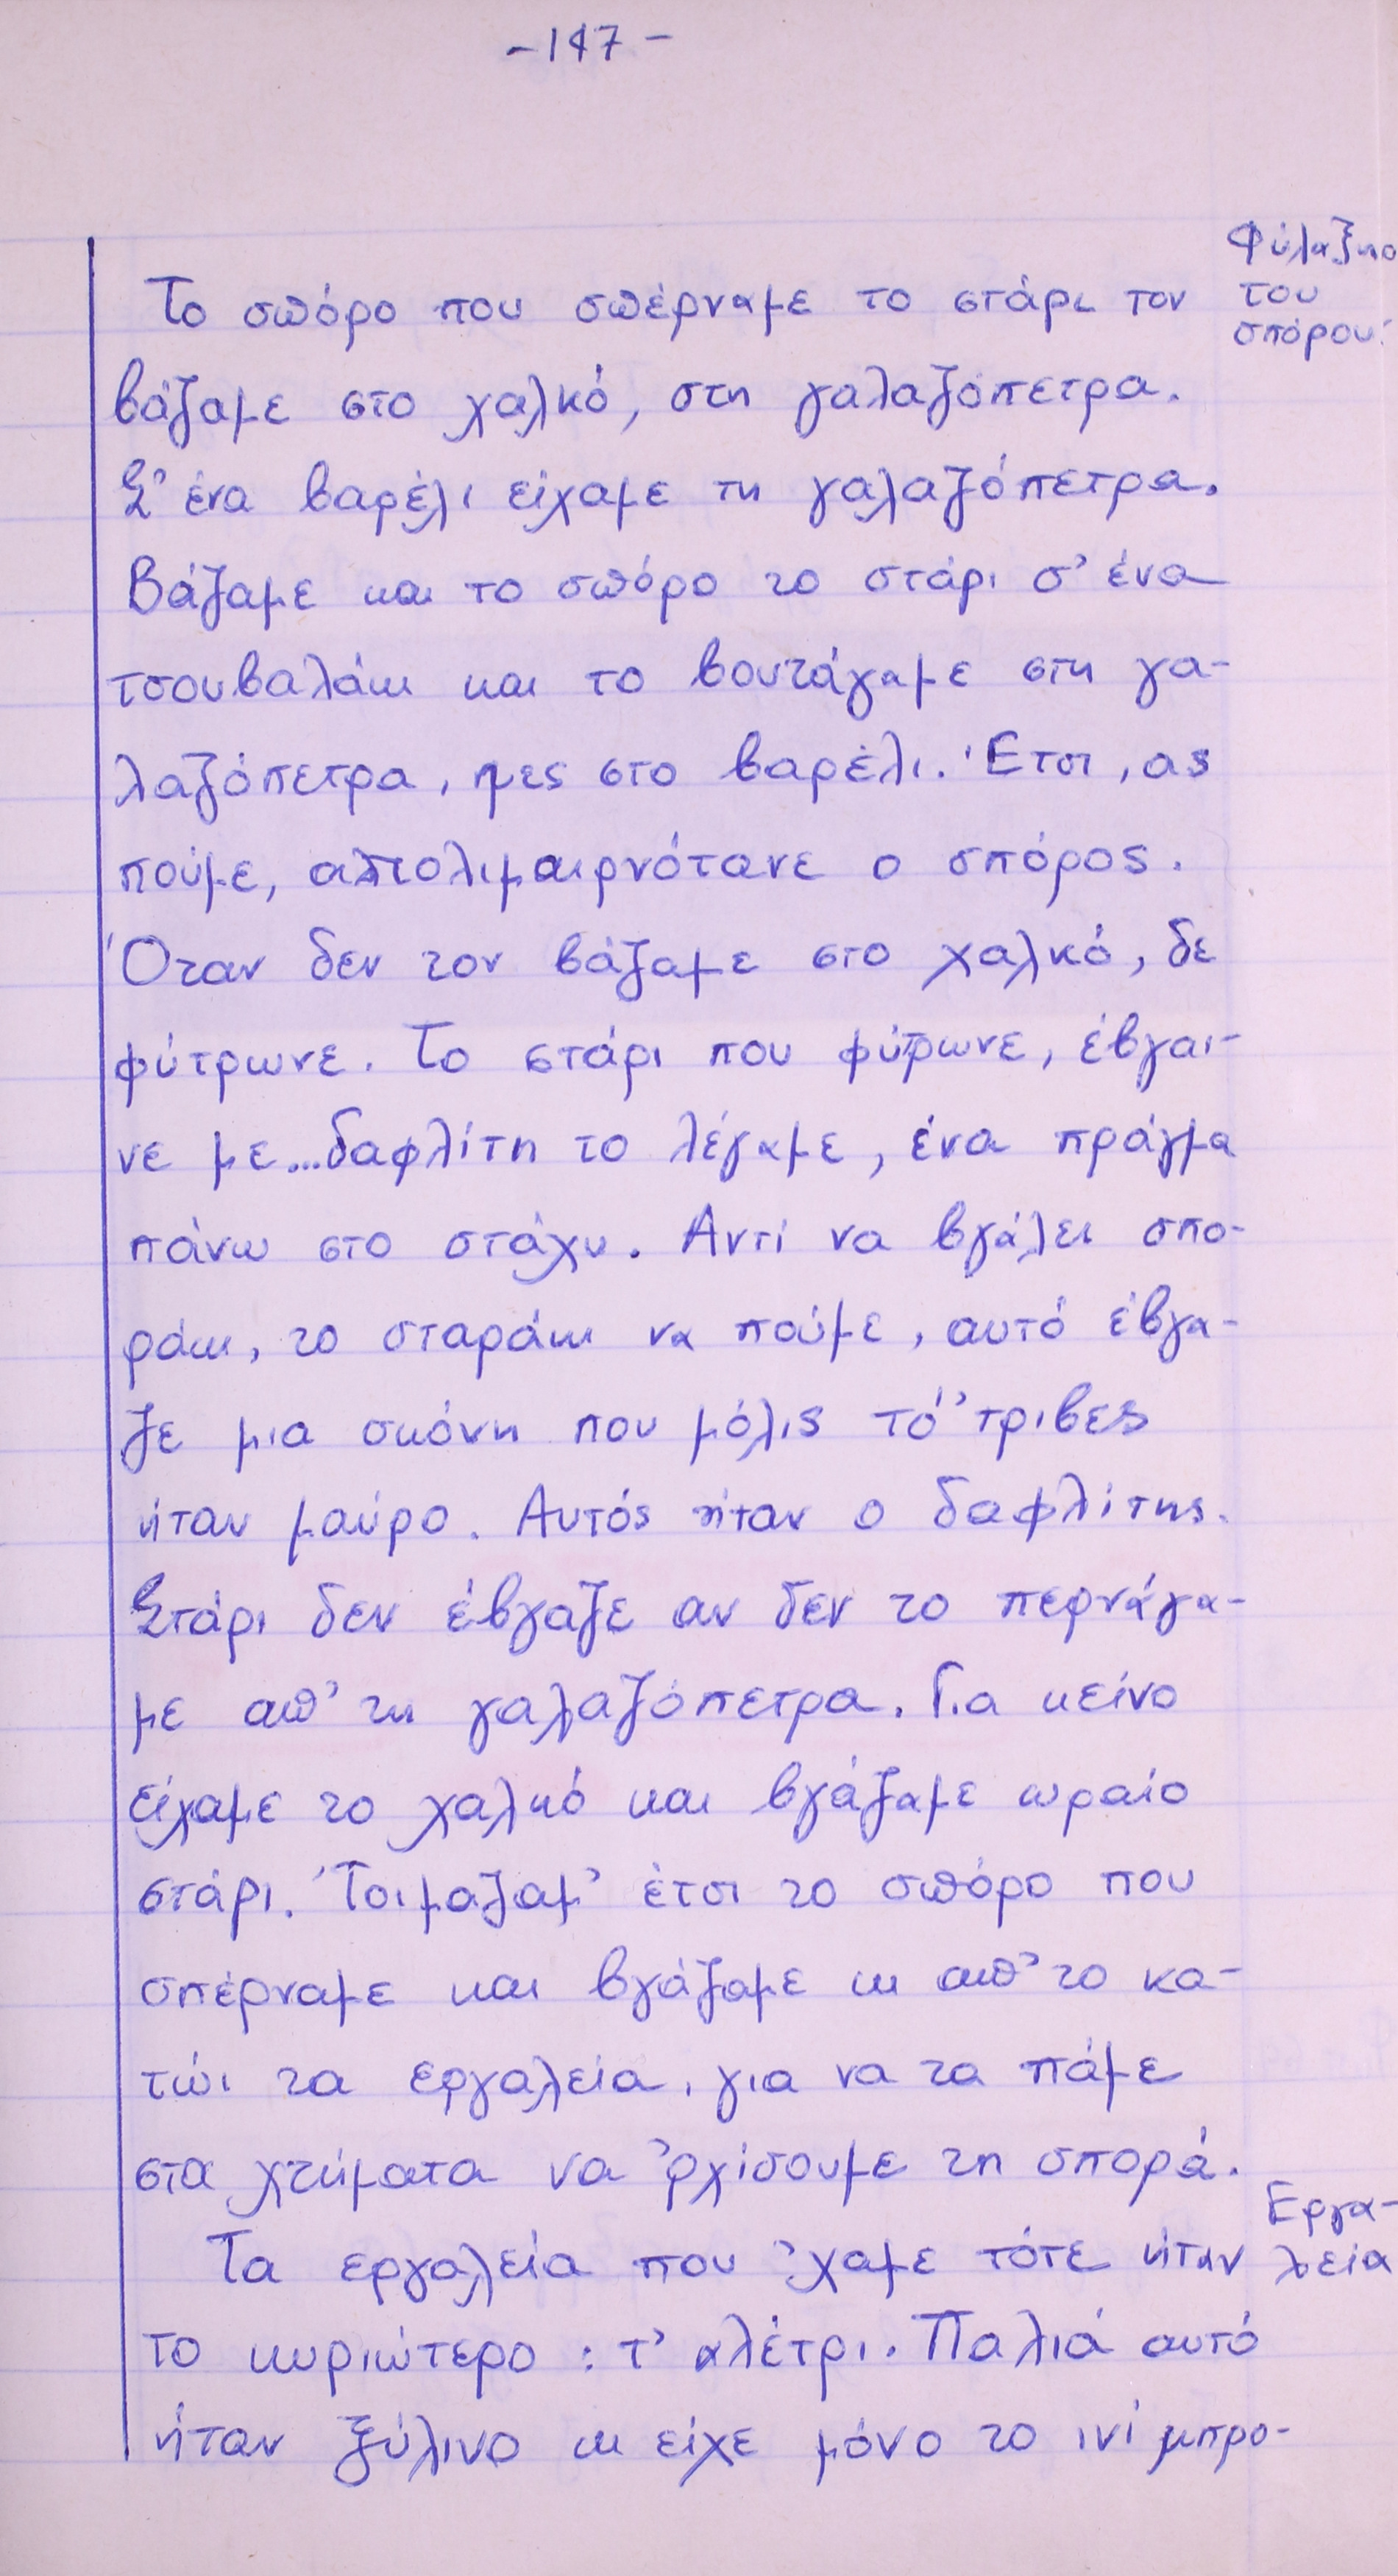 -147-
Φύλαξη
του
σπόρου.
Το σπόρο που σπέρναμε το στάρι τον
βάζαμε στο χαλκό, στη γαλαζόπετρα.
Σ' ένα βαρέλι είχαμε τη γαλαζόπετρα.
Βάζαμε και το σπόρο το στάρι σ' ένα
τσουβαλάκι και το βουτάγαμε στη γα-
λαζόπετρα, μες στο βαρέλι. Έτσι, ας
πούμε, απολιμαιρνότανε ο σπόρος.
Όταν δεν τον βάζαμε στο χαλκό, δε
φύτρωνε. Το στάρι που φύτρωνε, έβγαι-
νε με...δαφλίτη το λέγαμε, ένα πράγμα
πάνω στο στάχυ. Αντί να βγάλει σπο-
ράκι, το σταράκι να πούμε, αυτό έβγα-
ζε μια σκόνη που μόλις τό 'τριβες
ήταν μαύρο. Αυτός ήταν ο δαφλίτης.
Στάρι δεν έβγαζε αν δεν το περνάγα-
με απ' τη γαλαζόπετρα. Για κείνο
είχαμε το χαλκό και βγάζαμε ωραίο
στάρι. 'Τοιμάζαμ' έτσι το σπόρο που
σπέρναμε και βγάζαμε κι απ' το κα-
τώι τα εργαλεία, για να τα πάμε
στα χτήματα να 'ρχίσουμε τη σπορά.
Εργα-
λεία
Τα εργαλεία που 'χαμε τότε ήταν
το κυριώτερο : τ' αλέτρι. Παλιά αυτό
ήταν ξύλινο κι είχε μόνο το ινί μπρο-